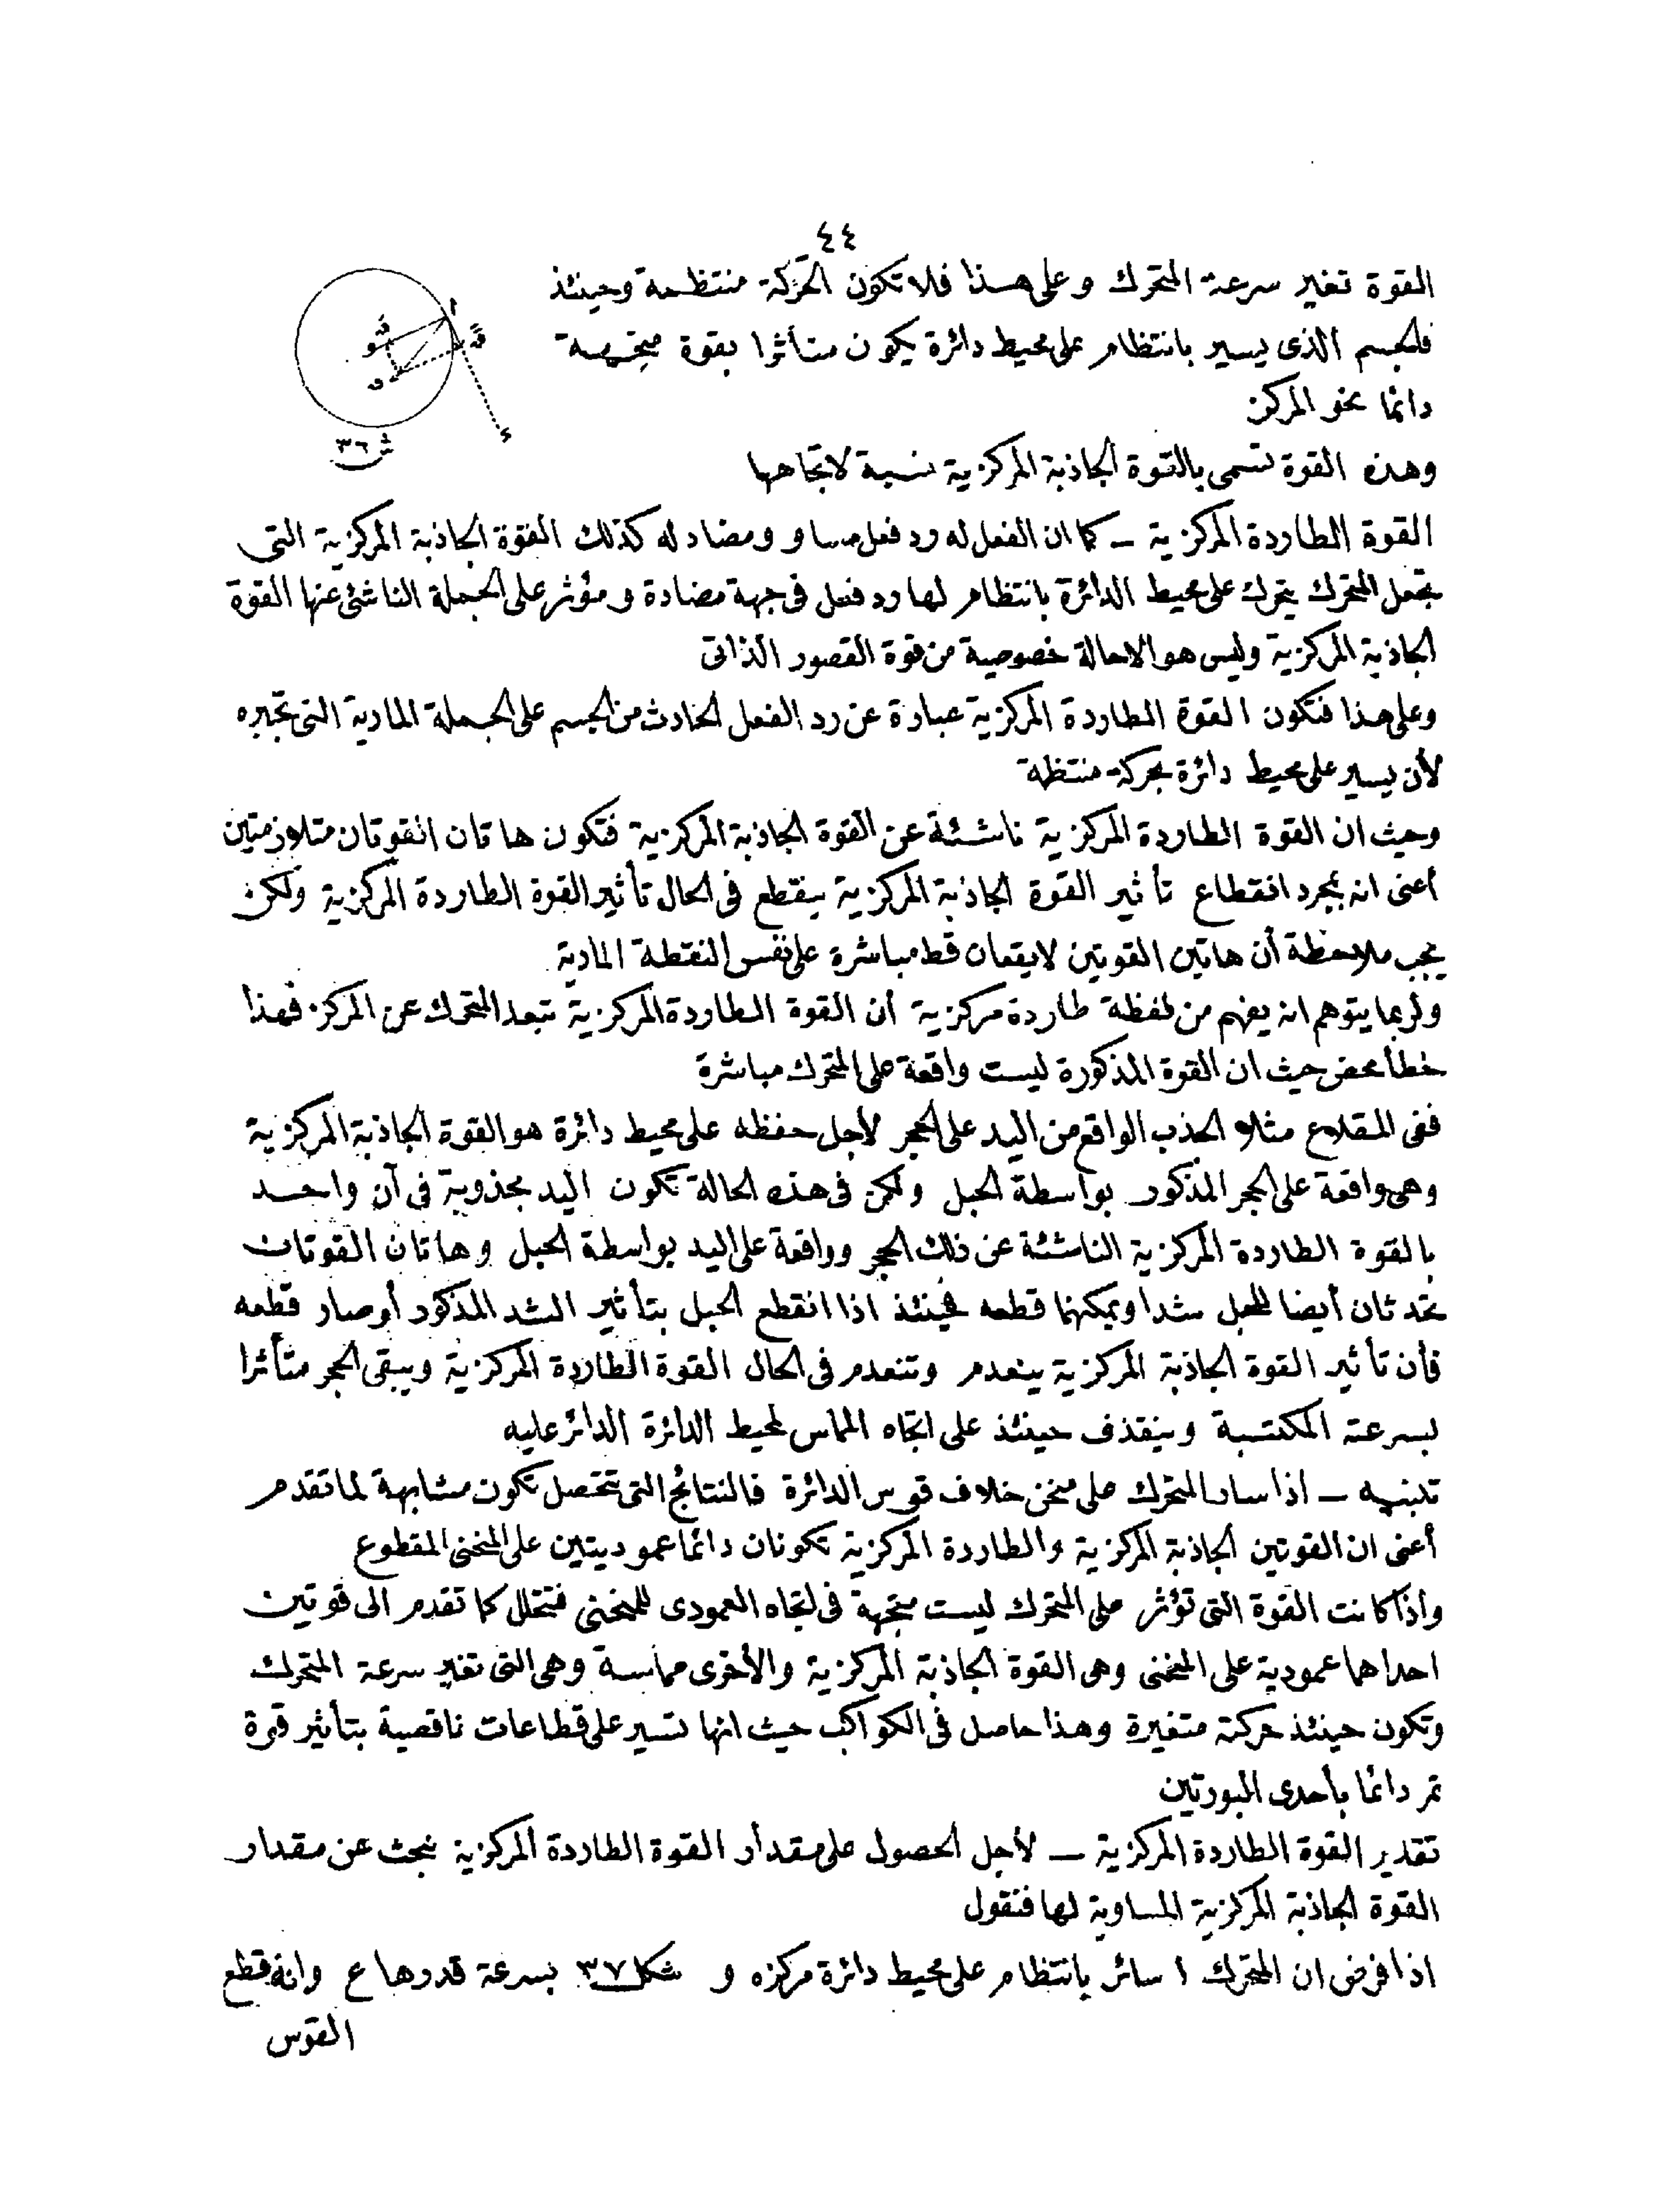 ٤٤
القوة تغير سرعة المتحرك وعلى هذا فلا تكون الحركة منتظمة وحينئذ
فالجسم الذى يسير بانتظام على محيط دائرة يكون متأثرا بقوة متجهة
دائما نحو المركز
شـ ٣٦
وهذه القوة تسمى بالقوة الجاذبة المركزية نسبة لاتجاهها
القوة الطاردة المركزية ـ كما ان الفعل له رد فعل مساو ومضاد له كذلك القوة الجاذبة المركزية التى
تجعل المتحرك يتحرك على محيط الدائرة بانتظام لها رد فعل فى جهة مضادة ومؤثر على الجملة الناشئ عنها القوة
الجاذبة المركزية وليس هو الاحالة خصوصية من قوة القصور الذاتى
وعلى هذا فتكون القوة الطاردة المركزية عبارة عن رد الفعل الحادث من الجسم على الجملة المادية التى تجبره
لأن يسير على محيط دائرة بحركة منتظمة
وحيث ان القوة الطاردة المركزية ناشئة عن القوة الجاذبة المركزية فتكون هاتان القوتان متلازمتين
أعنى انه بمجرد انقطاع تأثير القوة الجاذبة المركزية ينقطع فى الحال تأثير القوة الطاردة المركزية ولكن
يجب ملاحظة أن هاتين القوتين لايقعان قط مباشرة على نفس النقطة المادية
ولربما يتوهم انه يفهم من لفظة طاردة مركزية أن القوة الطاردة المركزية تبعد المتحرك عن المركز فهذا
خطأ محض حيث ان القوة المذكورة ليست واقعة على المتحرك مباشرة
ففى المقلاع مثلا الجذب الواقع من اليد على الحجر لأجل حفظه على محيط دائرة هو القوة الجاذبة المركزية
وهى واقعة على الحجر المذكور بواسطة الحبل ولكن فى هذه الحالة تكون اليد مجذوبة فى آن واحد
بالقوة الطاردة المركزية الناشئة عن ذلك الحجر وواقعة على اليد بواسطة الحبل وهاتان القوتان
تحدثان أيضا للحبل شدا ويمكنهما قطعه فحينئذ اذا انقطع الحبل بتأثير الشد المذكور أو صار قطعه
فأن تأثير القوة الجاذبة المركزية ينعدم وتنعدم فى الحال القوة الطاردة المركزية ويبقى الحجر متأثرا
بسرعته المكتسبة وينقذف حينئذ على اتجاه المماس لمحيط الدائرة الدائر عليه
تنبيه ـ اذا سار المتحرك على منحن خلاف قوس الدائرة فالنتائج التى تتحصل تكون مشابهة لما تقدم
أعنى ان القوتين الجاذبة المركزية والطاردة المركزية تكونان دائما عموديتين على المنحنى المقطوع
واذا كانت القوة التى تؤثر على المتحرك ليست متجهة فى اتجاه العمودى للمنحنى فتتحلل كما تقدم الى قوتين
احداهما عمودية على المنحنى وهى القوة الجاذبة المركزية والأخرى مماسة وهى التى تغير سرعة المتحرك
وتكون حينئذ حركته متغيرة وهذا حاصل فى الكواكب حيث انها تسير على قطاعات ناقصية بتأثير قوة
تمر دائما بأحدى البورتين
تقدير القوة الطاردة المركزية ـ لأجل الحصول على مقدار القوة الطاردة المركزية نبحث عن مقدار
القوة الجاذبة المركزية المساوية لها فنقول
اذا فرض ان المتحرك ا سائر بانتظام على محيط دائرة مركزه و شكل ٣٧ بسرعة قدرها ع وانه قطع
القوس